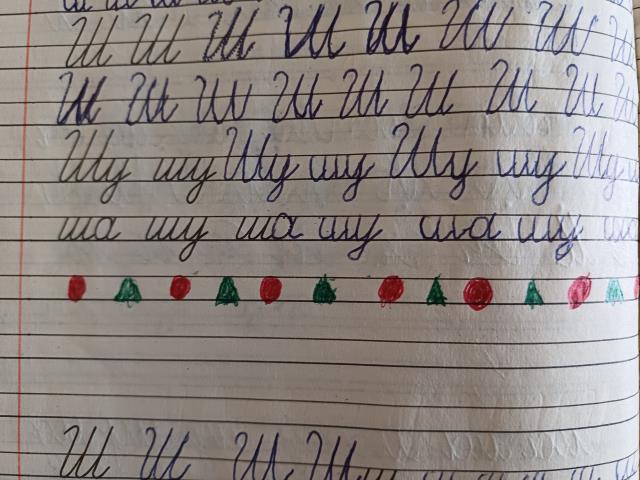 Ш Ш Ш Ш Ш Ш Ш
Ш Ш Ш Ш Ш Ш Ш Ш
Шу шу Шу шу Шу шу Шу
ша шу ша шу ша шу
Ш Ш Ш Ш